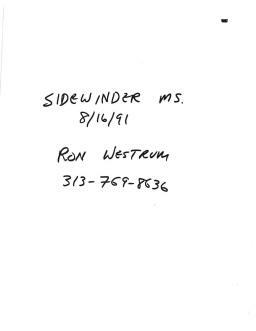 SIDEWINDER MS.
8/16/91
RON WESTRUM
313-769-8636